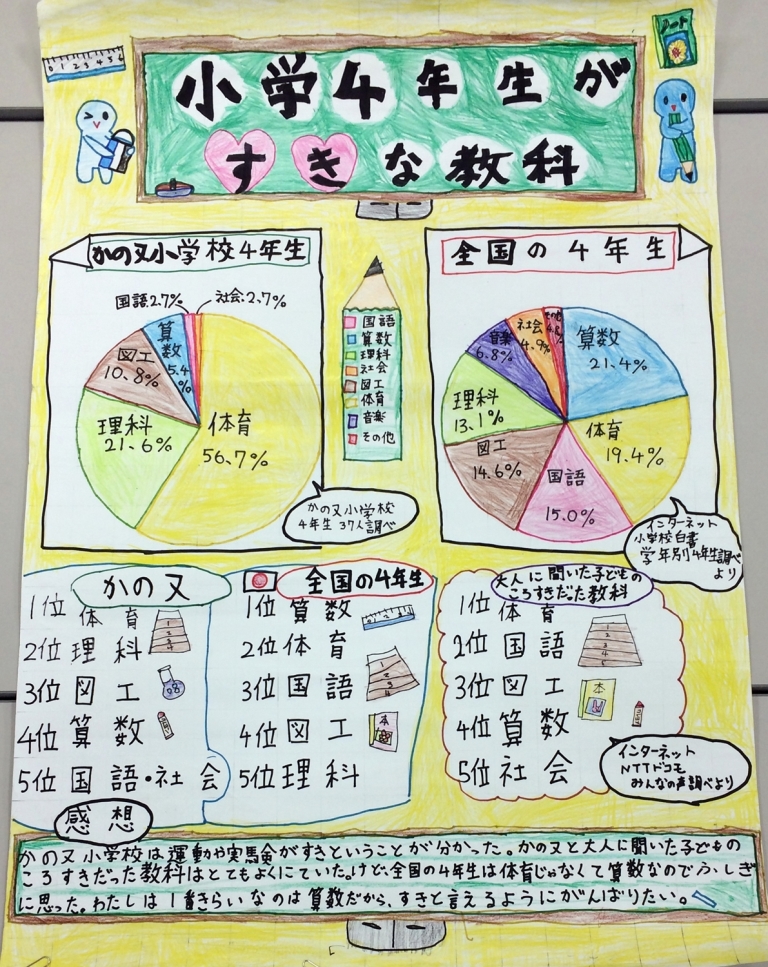 小学4年生が
すきな教科
0 1 2 3 4 5 6
ノート
かの又小学校4年生
国語2.7%
社会2.7%
算数5.4%
図工10.8%
理科21.6%
体育56.7%
かの又小学校
4年生37人調べ
国語
算数
理科
社会
図工
体育
音楽
その他
全国の4年生
その他4.8%
社会4.9%
音楽6.8%
理科13.1%
図工14.6%
国語15.0%
体育19.4%
算数21.4%
インターネット
小学校白書
学年別4年生調べ
より
かの又
1位 体育
2位 理科
3位 図工
4位 算数
5位 国語・社会
全国の4年生
1位 算数
2位 体育
3位 国語
4位 図工
5位 理科
本
大人に聞いた子どもの
ころすきだった教科
1位 体育
2位 国語
3位 図工
4位 算数
5位 社会
本
インターネット
NTTドコモ
みんなの声調べより
感想
かの又小学校は運動や実験がすきということが分かった。かの又と大人に聞いた子どもの
ころすきだった教科はとてもよくにていた。けど、全国の4年生は体育じゃなくて算数なのでふしぎ
に思った。わたしは1番きらいなのは算数だから、すきと言えるようにがんばりたい。